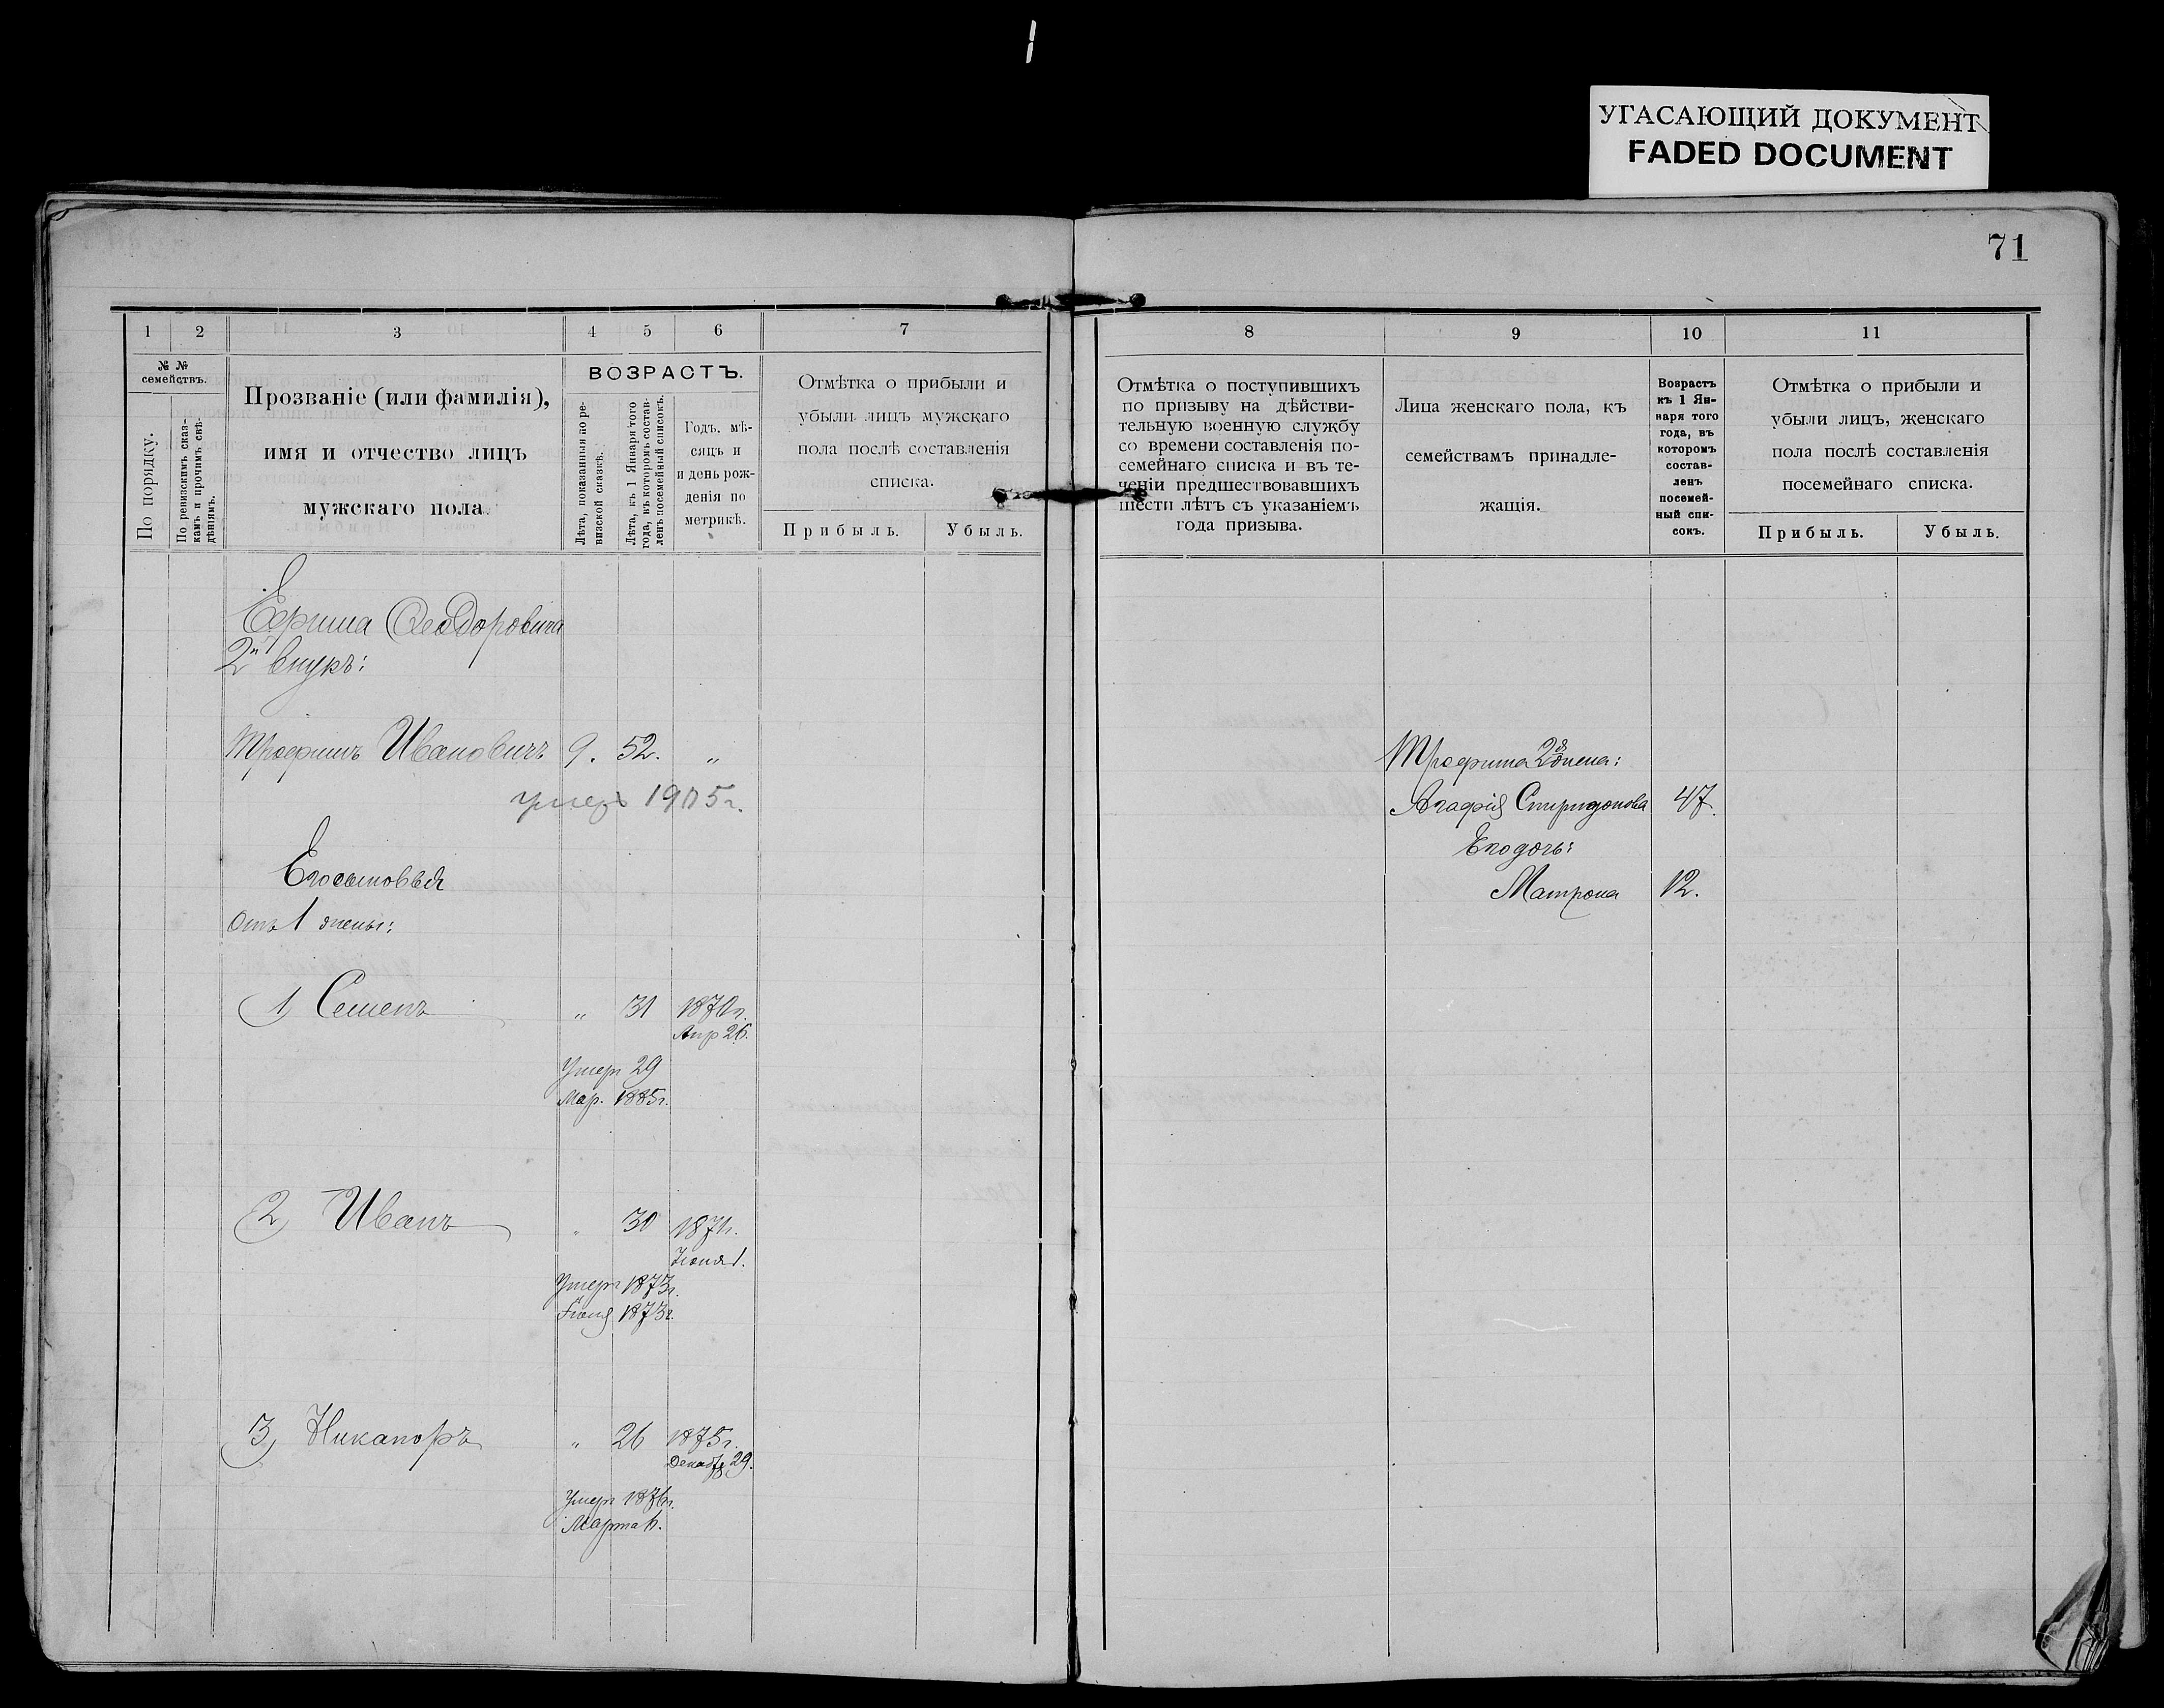 УГАСАЮЩИЙ ДОКУМЕНТ
FADED DOCUMENT
71
1 2 3 4 5 6 7
№ №
семействъ.
По порядку.
По ревизскимъ сказ-
камъ и прочимъ свѣ-
дѣніямъ.
Прозваніе (или фамилія),
имя и отчество лицъ
мужскаго пола.
ВОЗРАСТЪ.
Лѣта, показанныя по ре-
визской сказкѣ.
Лѣта, къ 1 Января того
года, въ которомъ состав-
ленъ посемейный списокъ.
Годъ, мѣ-
сяцъ и
и день рож-
денія по
метрикѣ.
Отмѣтка о прибыли и
убыли лицъ мужскаго
пола послѣ составленія
списка.
Прибыль. Убыль.
8 9 10 11
Отмѣтка о поступившихъ
по призыву на дѣйстви-
тельную военную службу
со времени составленія по-
семейнаго списка и въ те-
ченіи предшествовавшихъ
шести лѣтъ съ указаніемъ
года призыва.
Лица женскаго пола, къ
семействамъ принадле-
жащія.
Возрастъ
къ 1 Ян-
варя того
года, въ
которомъ
состав-
ленъ
посемей-
ный спи-
сокъ.
Отмѣтка о прибыли и
убыли лицъ, женскаго
пола послѣ составленія
посемейнаго списка.
Прибыль. Убыль.
Ѳеодоровича
2й внукъ:
Трофимъ Ивановичъ 9. 52. "
умеръ 1905 г.
Его сыновья
Отъ 1 жены:
1) Семенъ " 31 1870 г.
Апр 26.
Умеръ 29
Мар. 1885 г.
2) Иванъ " 30 1871 г.
Іюня 1.
Умеръ 1873 г.
Іюня 1873 г.
3) Никаноръ " 26 1875 г.
Декабр 29.
Умеръ 1876 г.
Марта 6.
Трофима 2я жена:
Агафія Спиридонова 47.
Его дочь:
Матрона 12.